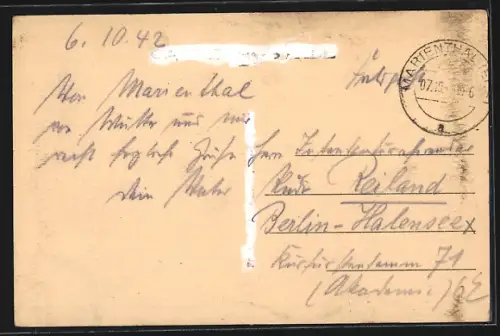 6. 10. 42
Von Marienthal
von Mutter und mir
recht herzliche Grüße
Dein Vater
Feldpost
MARIENTHAL
07.10.
a
Herrn
Rudi Reiland
Berlin-Halensee
Kurfürstendamm 71
(Akademie)